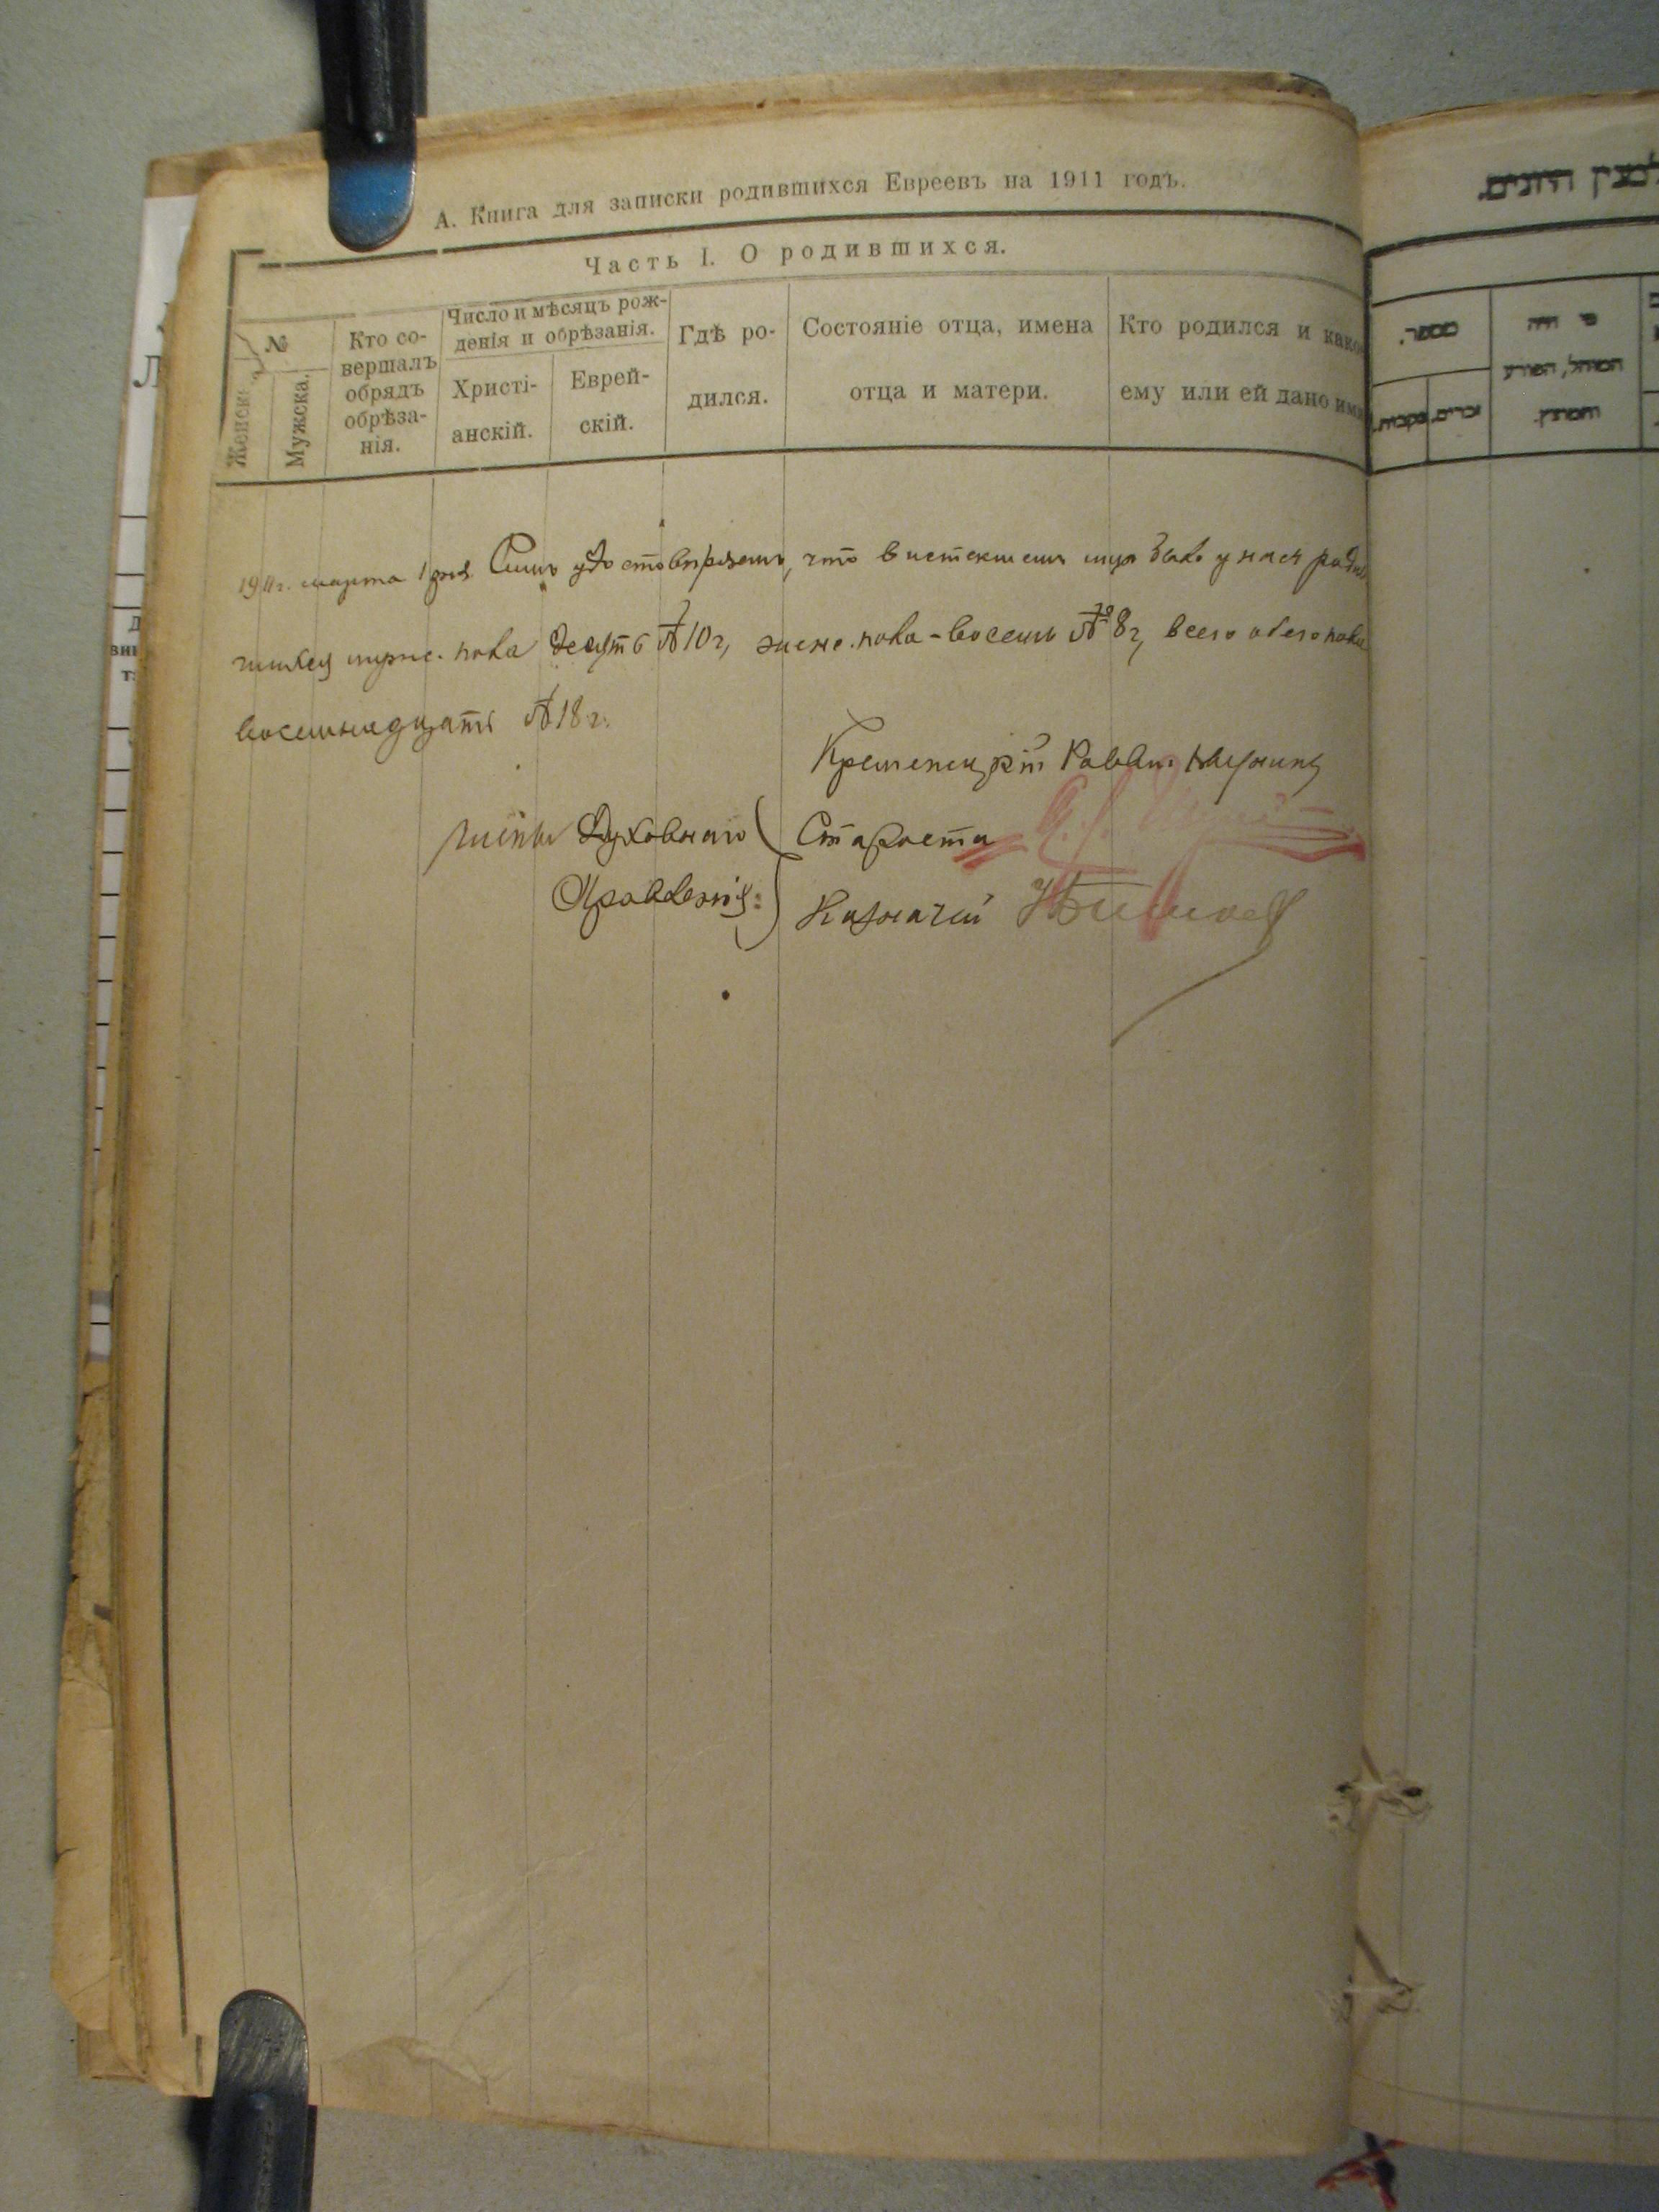 А. Книга для записки родившихся Евреевъ на 1911 годъ.
Часть I. О родившихся.
№
Женска.
Мужска.
Кто со-
вершалъ
обрядъ
обрѣза-
нія.
Число и мѣсяцъ рож-
денія и обрѣзанія.
Христі-
анскій.
Еврей-
скій.
Гдѣ ро-
дился.
Состояніе отца, имена
отца и матери.
Кто родился и како
ему или ей дано имя
1911г. марта 1 дня Симъ удостовѣряемъ, что въ истекшемъ м-цѣ было у насъ родив
шихся мужс. пола десять № 10 г, женс. пола - восемь № 8 г, всего обего пола
восемнадцать № 18 г.
Кременецкій Раввинъ
Члены Духовнаго
Староста
Правленія:
Казначей
מספר.
זכרים.
נקבות.
מי היה
המוהל, הפורע
והמוצץ.